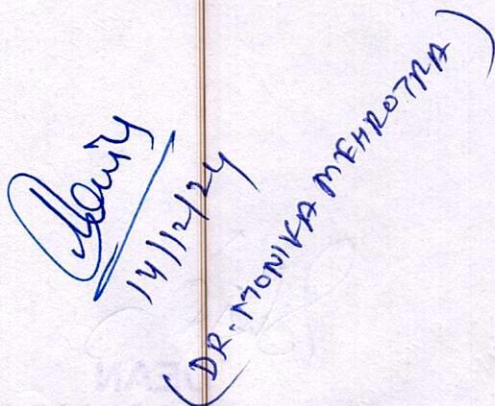 14/12/24
(DR. MONIKA MEHROTRA)